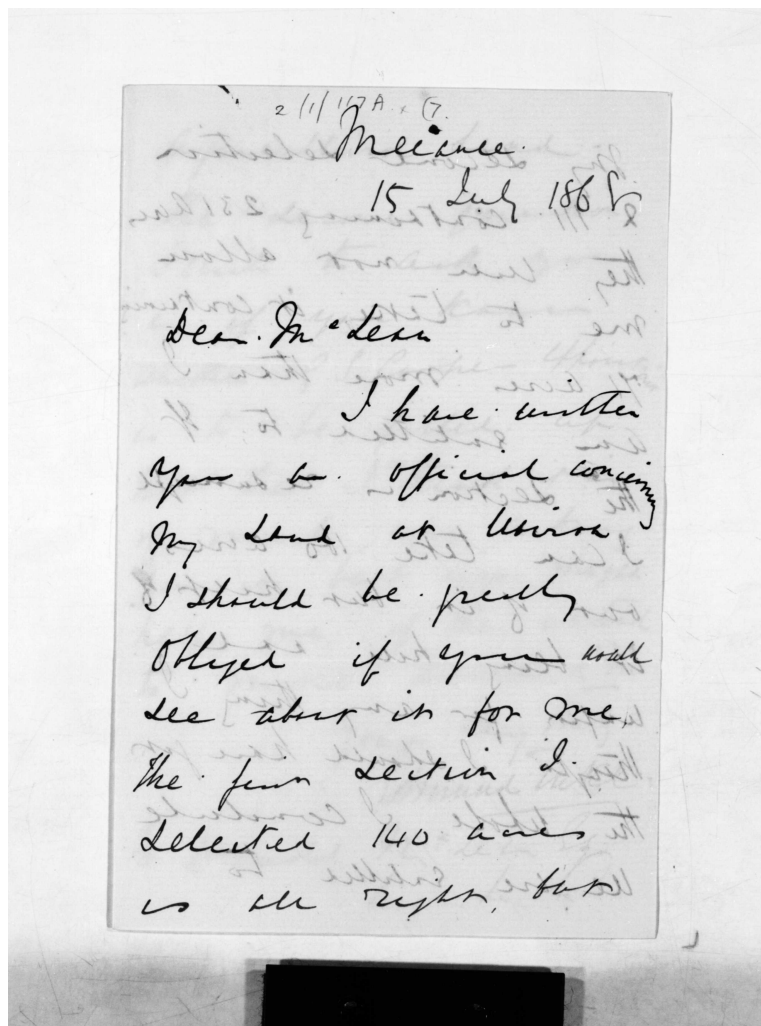 2/1/117A
Meeanee.
15 July 1868
Dear McLean
I have written
you an official concerning
my Land at Wairoa
I should be greatly
obliged if you would
see about it for me.
The first section I
selected 140 acres
is all right, but